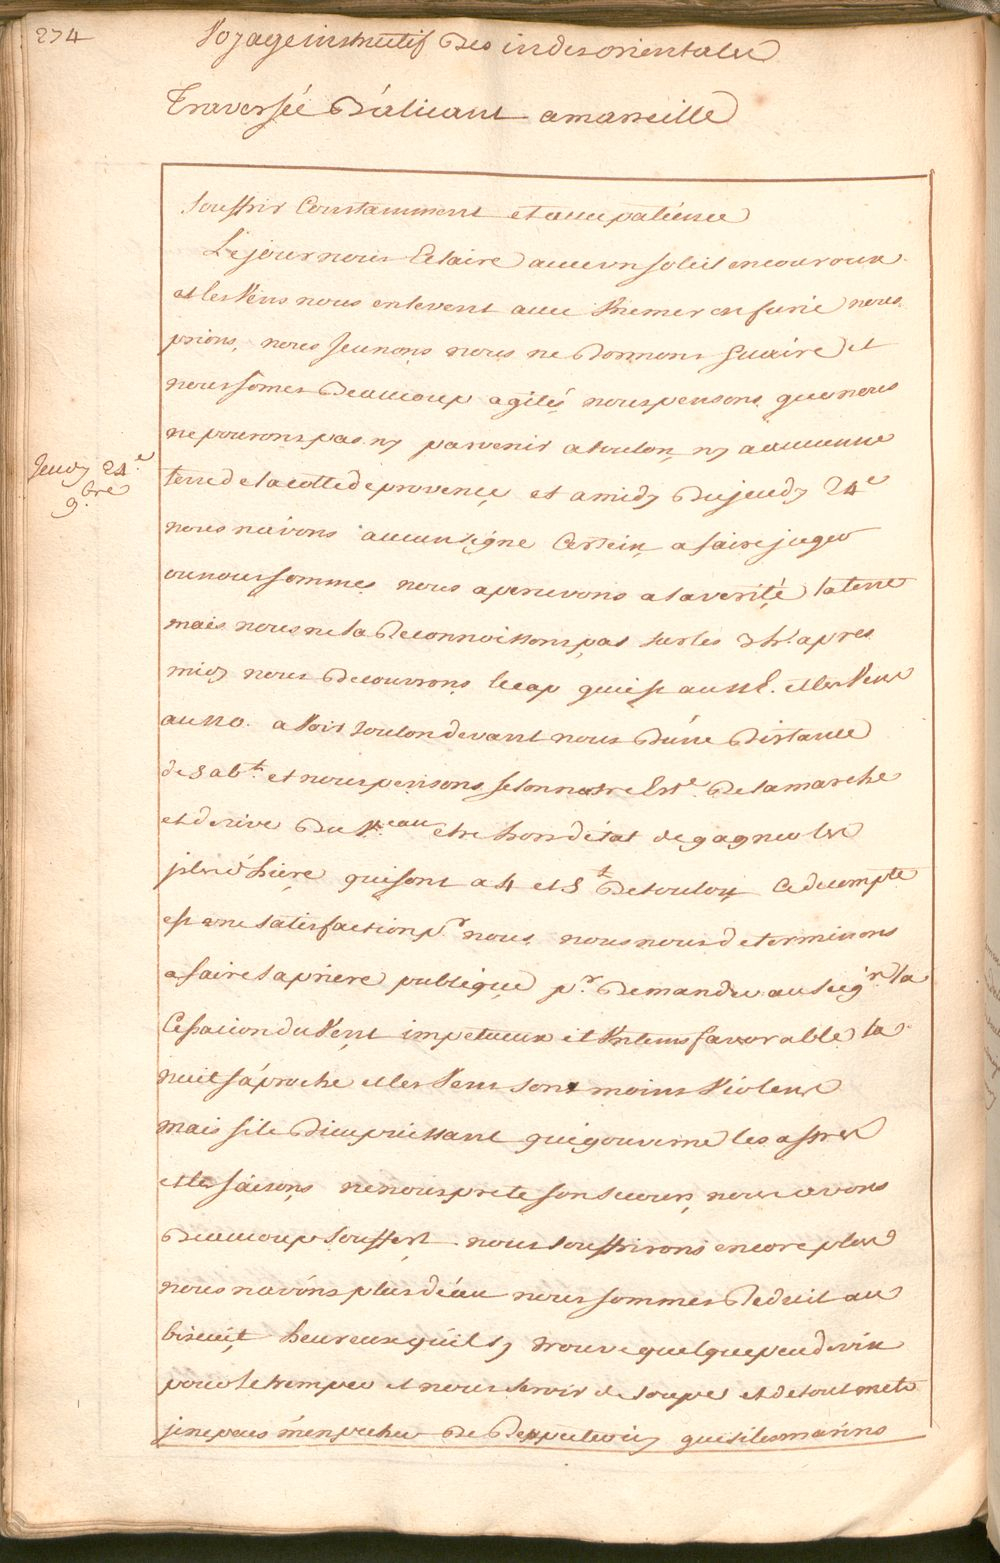 274
Voyage instructif Des indes orientales
Traversée D'alicant a marseille
souffrir Constamment et avec patience
Le jour nous Eclaire avec un soleil en couroux
et les Vens nous enlevent avec Vne mer en furie nous
prions, nous jeunons nous ne Dormons Guaire et
nous sómes Beaucoup agités nous pensons que nous
ne pourons pas ny parvenir a toulon, ny a aucunne
Jeudy 24.e
9.bre
terre de la cotte de provence et a midy Du jeudy 24e
nous n'avons aucun signe Certein a faire juger
ou nous sommes nous apercevons a la verité la terre
mais nous ne la Reconnoissons pas sur les 3 hr. apres
midy nous Decouvrons le cap qui est au
au no. a Voir toulon devant nous D'une Distance
de 8 a et nous pensons selon notre Est.e De la marche
et derive Du V.eau etre hors d'état de gagner les
jsles d'hiere qui sont a 4 et 5 De toulon Ce decompte
est une satisfaction p.r nous, nous nous determinons
a faire la priere publique p.r Demander au seig.r la
Cessacion du Vent impetueux et Vn tems favorable la
nuit s'áproche et les Vens sont moins Violens
mais si le Dieu puissant qui gouverne les astres
et les saisons ne nous prete son secours, nous avons
Beaucoup souffert nous souffrirons encore plus
nous n'avóns plus d'éau nous sommes Reduit au
biscuit heureux qu'il s'y trouve quelque peu de vin
pour le tremper et nous servir de soupe et de tout mets
je ne peus m'enpecher De que si les marins